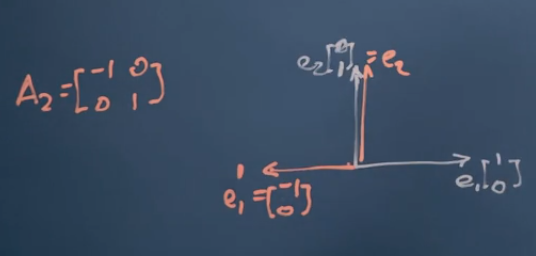 A₂ = [-1 0
0 1]
e₂ [0
1] = e₂
e₁' = [-1
0]
e₁ [1
0]